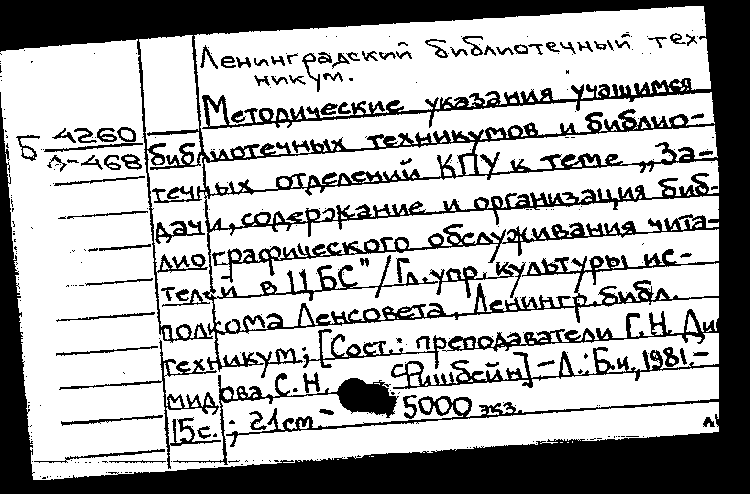 Ленинградский библиотечный тех-
никум.
Методические указания учащимся
Б 4260
библиотечных техникумов и библио-
Д-468
течных отделений КПУ к теме „За-
дачи, содержание и организация биб-
лиографического обслуживания чита-
телей в ЦБС" / Гл. упр. культуры ис-
полкома Ленсовета, Ленингр. библ.
техникум; [Сост.: преподаватели Г. Н. Ди
мидова, С. Н. Фишбейн] - Л.: Б.и., 1981. -
15 с.; 21 см. - 5000 экз.